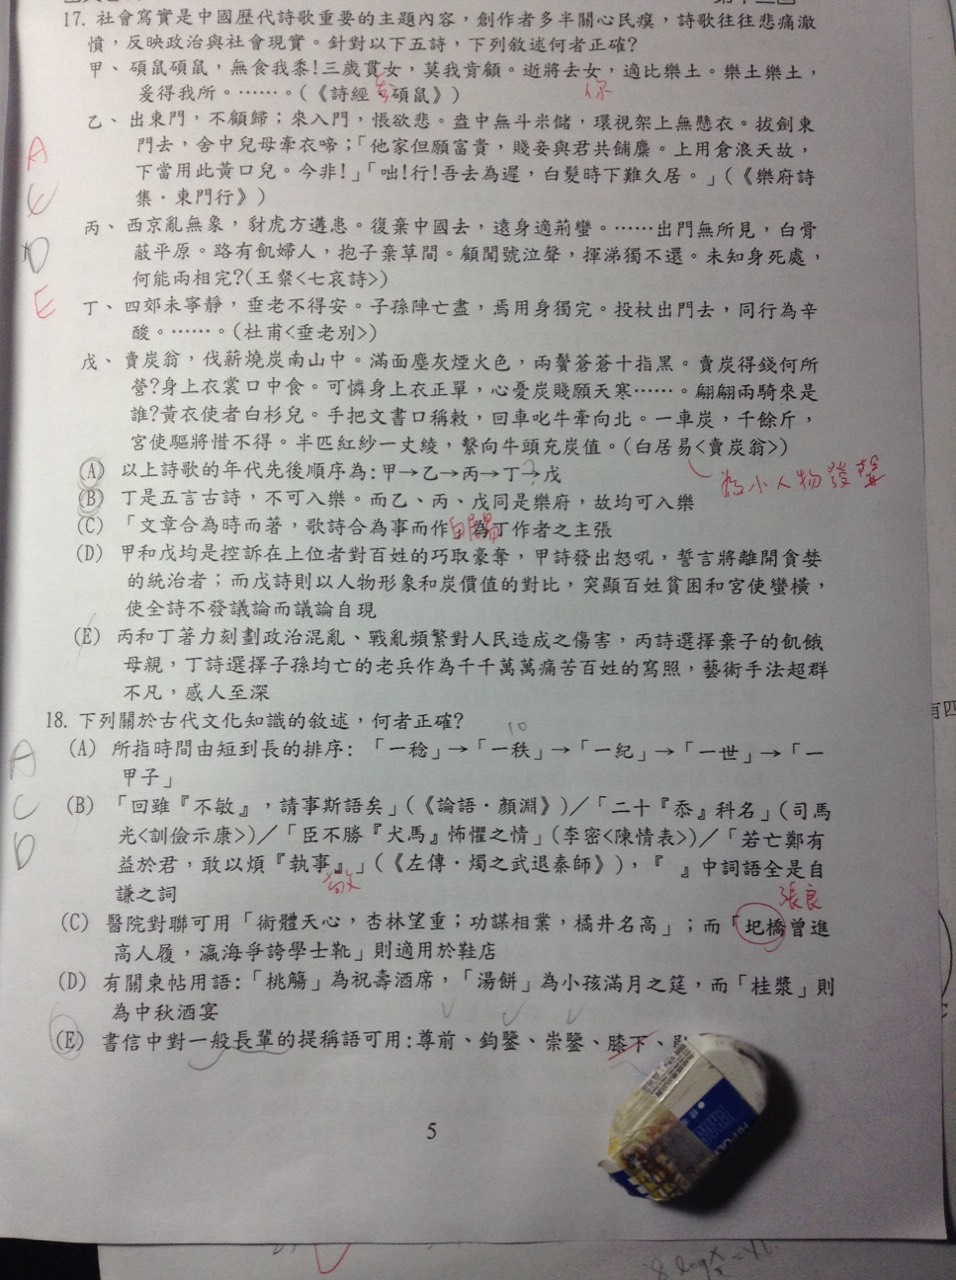 17. 社會寫實是中國歷代詩歌重要的主題內容，創作者多半關心民瘼，詩歌往往悲痛激
憤，反映政治與社會現實。針對以下五詩，下列敘述何者正確?
甲、碩鼠碩鼠，無食我黍!三歲貫女，莫我肯顧。逝將去女，適比樂土。樂土樂土，
爰得我所。……。(《詩經．碩鼠》)
你
乙、出東門，不顧歸；來入門，悵欲悲。盎中無斗米儲，環視架上無懸衣。拔劍東
門去，舍中兒母牽衣啼；「他家但願富貴，賤妾與君共餔糜。上用倉浪天故，
下當用此黃口兒。今非!」「咄!行!吾去為遲，白髮時下難久居。」(《樂府詩
集．東門行》)
丙、西京亂無象，豺虎方遘患。復棄中國去，遠身適荊蠻。……出門無所見，白骨
蔽平原。路有飢婦人，抱子棄草間。顧聞號泣聲，揮涕獨不還。未知身死處，
何能兩相完?(王粲<七哀詩>)
丁、四郊未寧靜，垂老不得安。子孫陣亡盡，焉用身獨完。投杖出門去，同行為辛
酸。……。(杜甫<垂老別>)
戊、賣炭翁，伐薪燒炭南山中。滿面塵灰煙火色，兩鬢蒼蒼十指黑。賣炭得錢何所
營?身上衣裳口中食。可憐身上衣正單，心憂炭賤願天寒……。翩翩兩騎來是
誰?黃衣使者白衫兒。手把文書口稱敕，回車叱牛牽向北。一車炭，千餘斤，
宮使驅將惜不得。半匹紅紗一丈綾，繫向牛頭充炭值。(白居易<賣炭翁>)
A
C
D
E
(A) 以上詩歌的年代先後順序為:甲→乙→丙→丁→戊
為小人物發聲
(B) 丁是五言古詩，不可入樂。而乙、丙、戊同是樂府，故均可入樂
(C) 「文章合為時而著，歌詩合為事而作」為丁作者之主張
(D) 甲和戊均是控訴在上位者對百姓的巧取豪奪，甲詩發出怒吼，誓言將離開貪婪
的統治者；而戊詩則以人物形象和炭價值的對比，突顯百姓貧困和宮使蠻橫，
使全詩不發議論而議論自現
(E) 丙和丁著力刻劃政治混亂、戰亂頻繁對人民造成之傷害，丙詩選擇棄子的飢餓
母親，丁詩選擇子孫均亡的老兵作為千千萬萬痛苦百姓的寫照，藝術手法超群
不凡，感人至深
18. 下列關於古代文化知識的敘述，何者正確?
10
(A) 所指時間由短到長的排序: 「一稔」→「一秩」→「一紀」→「一世」→「一
甲子」
A
C
D
(B) 「回雖『不敏』，請事斯語矣」(《論語．顏淵》)／「二十『忝』科名」(司馬
光<訓儉示康>)／「臣不勝『犬馬』怖懼之情」(李密<陳情表>)／「若亡鄭有
益於君，敢以煩『執事』」(《左傳．燭之武退秦師》)，『 』中詞語全是自
謙之詞
敬
張良
(C) 醫院對聯可用「術體天心，杏林望重；功謀相業，橘井名高」；而「圯橋曾進
高人履，瀛海爭誇學士靴」則適用於鞋店
(D) 有關柬帖用語:「桃觴」為祝壽酒席，「湯餅」為小孩滿月之筵，而「桂漿」則
為中秋酒宴
(E) 書信中對一般長輩的提稱語可用:尊前、鈞鑒、崇鑒、膝下、
5